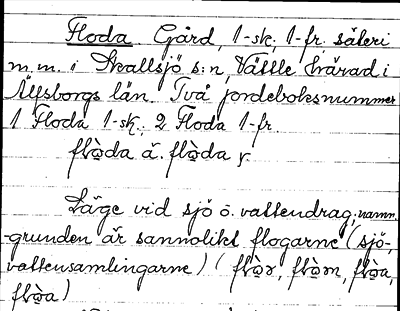 Floda Gård, 1-sk; 1-fr. säteri
m.m. i Skallsjö s:n, Vättle härad i
Älfsborgs län. Två jordeboksnummer
1 Floda 1-sk.; 2 Floda 1-fr.
flo̱da ä. flo̱da y.
Läge vid sjö o. vattendrag; namn-
grunden är sannolikt flogarne (sjö-
vattensamlingarne) (flo̱r, flo̱rn, flo̱a,
flo̱a)